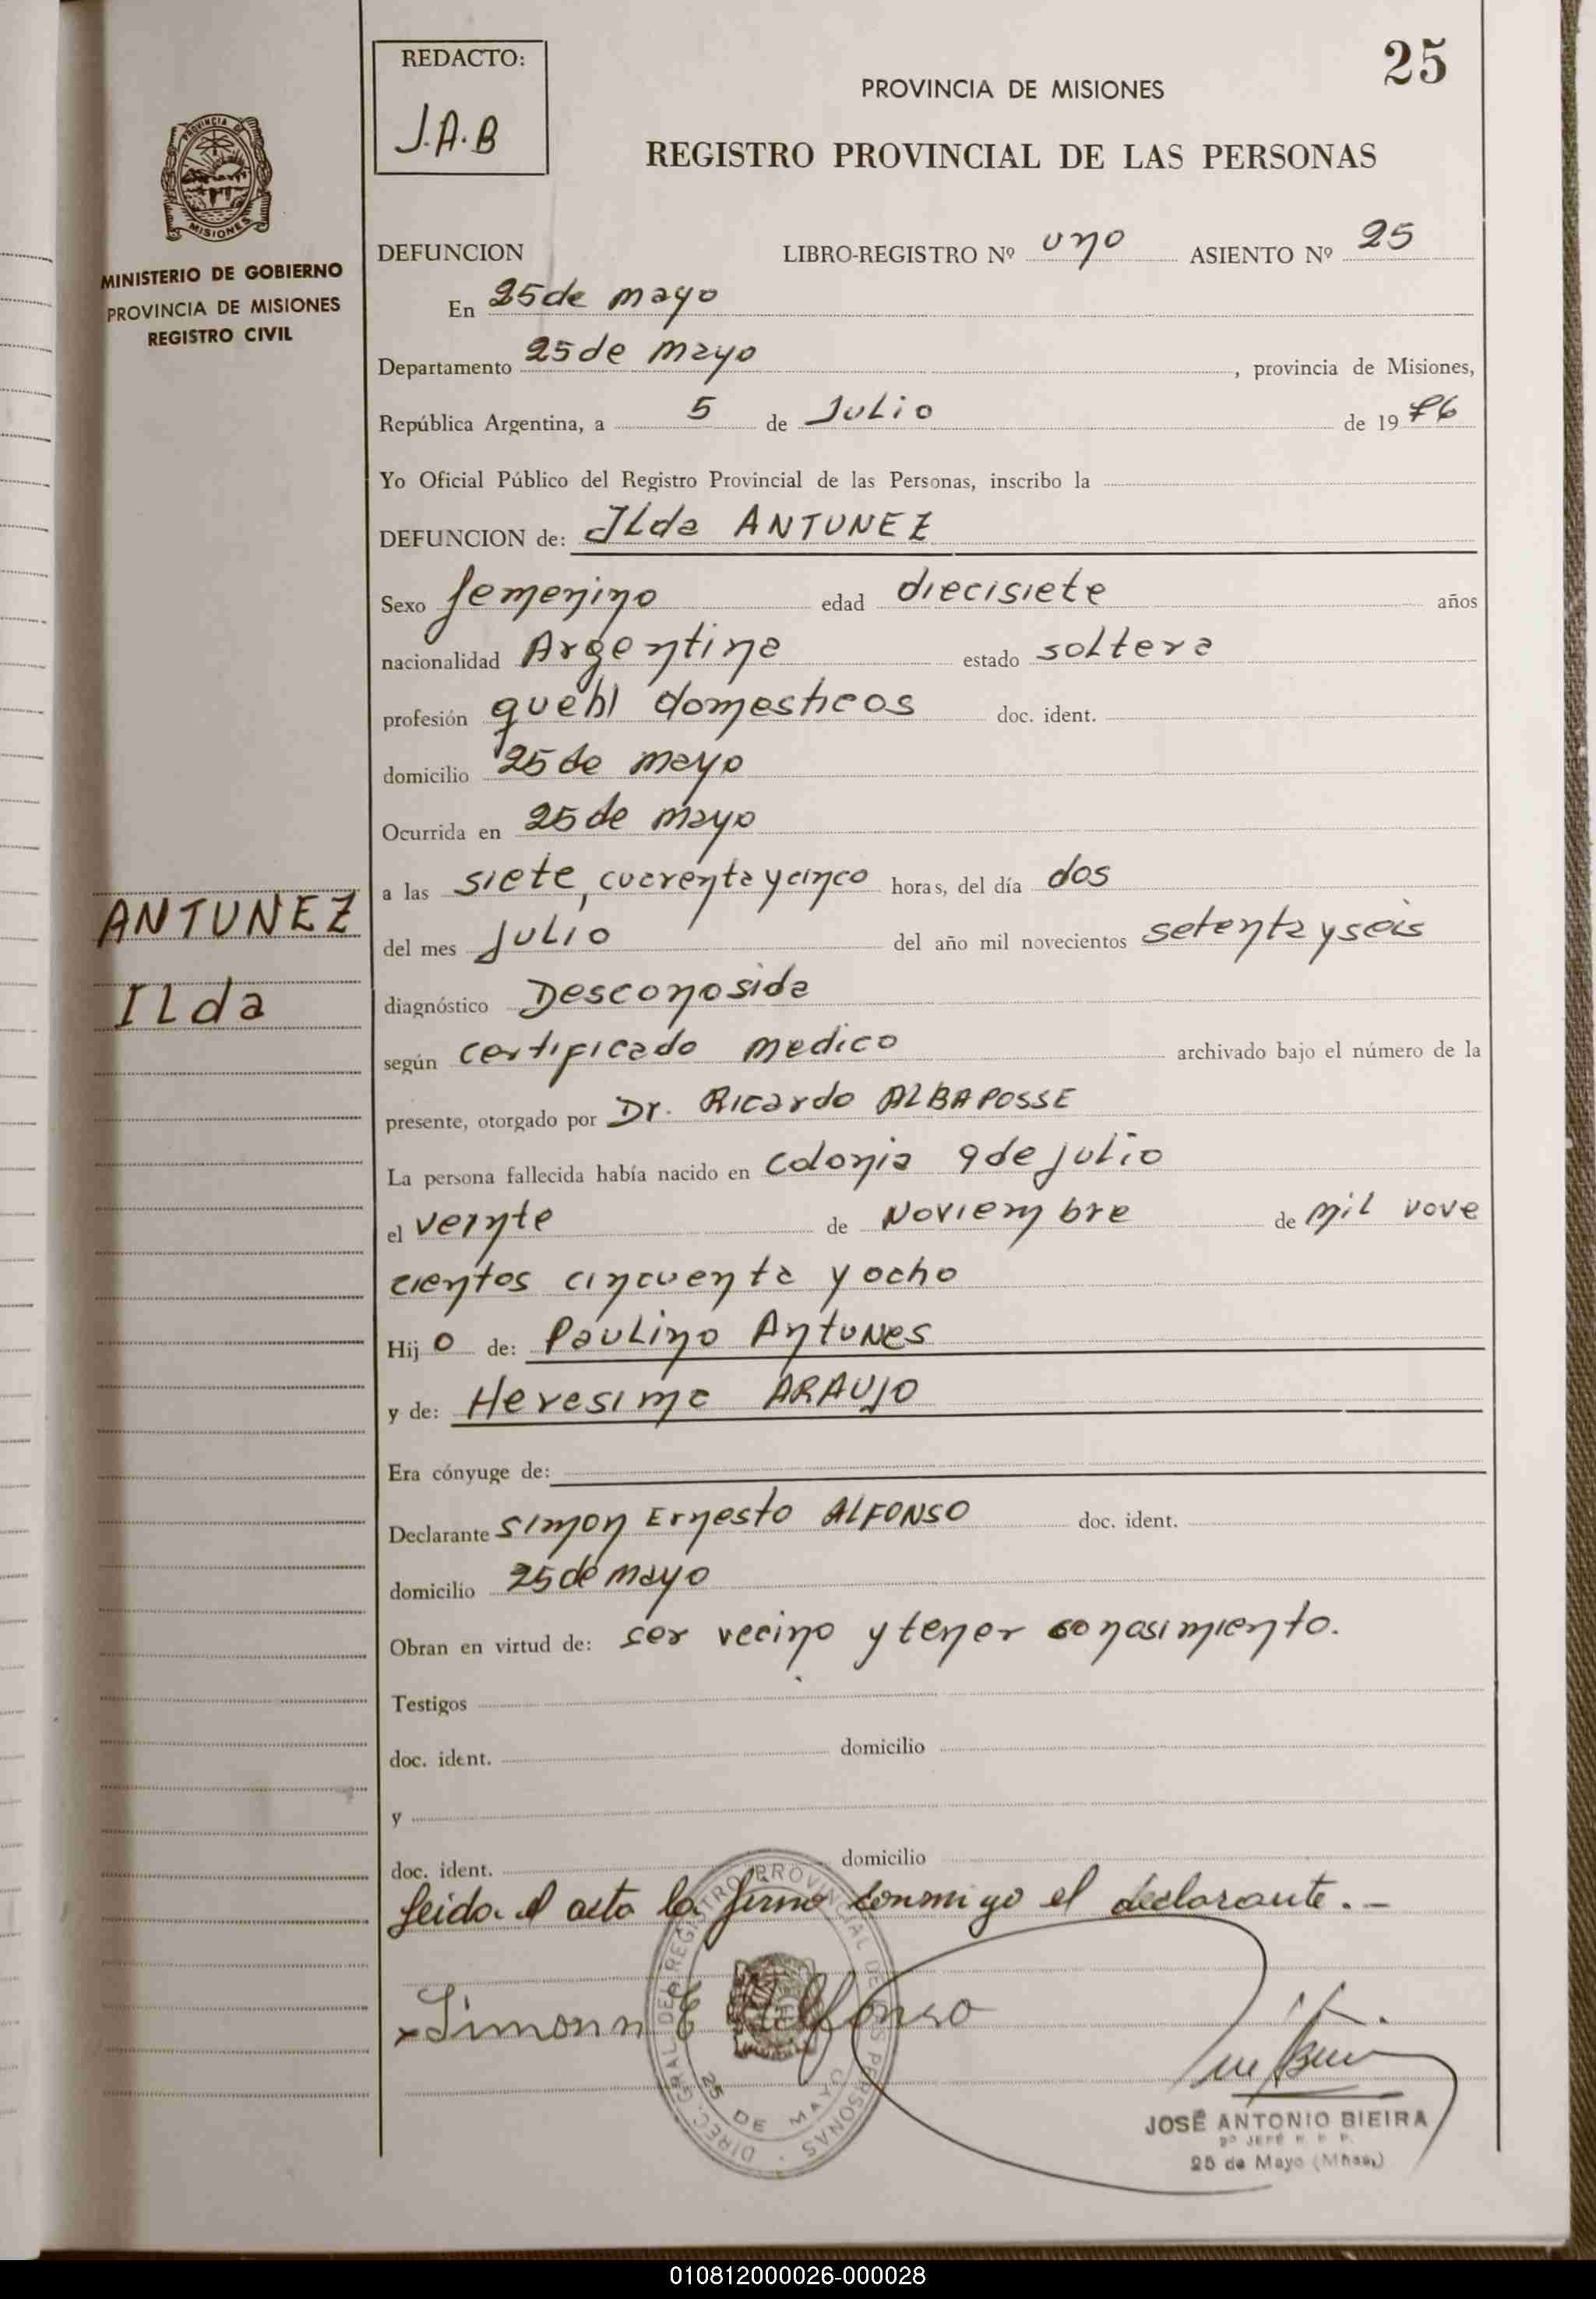 25
REDACTO:
J.A.B
PROVINCIA DE MISIONES
REGISTRO PROVINCIAL DE LAS PERSONAS
PROVINCIA DE
MISIONES
MINISTERIO DE GOBIERNO
PROVINCIA DE MISIONES
REGISTRO CIVIL
DEFUNCION LIBRO-REGISTRO Nº uno ASIENTO Nº 25
En 25 de mayo
Departamento 25 de mayo , provincia de Misiones,
República Argentina, a 5 de Julio de 1976
Yo Oficial Público del Registro Provincial de las Personas, inscribo la
DEFUNCION de: Ilda ANTUNEZ
Sexo femenino edad diecisiete años
nacionalidad Argentina estado soltera
profesión quehl domesticos doc. ident.
domicilio 25 de mayo
Ocurrida en 25 de mayo
a las siete, cuarenta y cinco horas, del día dos
ANTUNEZ
del mes Julio del año mil novecientos setenta y seis
Ilda
diagnóstico Desconosida
según certificado medico archivado bajo el número de la
presente, otorgado por Dr. Ricardo ALBAPOSSE
La persona fallecida había nacido en Colonia 9 de julio
el veinte de Noviembre de mil nove
cientos cincuenta y ocho
Hijo de: Paulino Antunes
y de: Heresima ARAUJO
Era cónyuge de:
Declarante Simon Ernesto ALFONSO doc. ident.
domicilio 25 de mayo
Obran en virtud de: ser vecino y tener conosimiento.
Testigos
doc. ident. domicilio
y
doc. ident. domicilio
leida el acta la firma conmigo el declarante.-
Simonn E Alfonso
DIREC. GRAL DEL REGISTRO PROVINCIAL DE LAS PERSONAS
25 DE MAYO
JOSÉ ANTONIO BIEIRA
25 de Mayo (Mnes.)
010812000026-000028